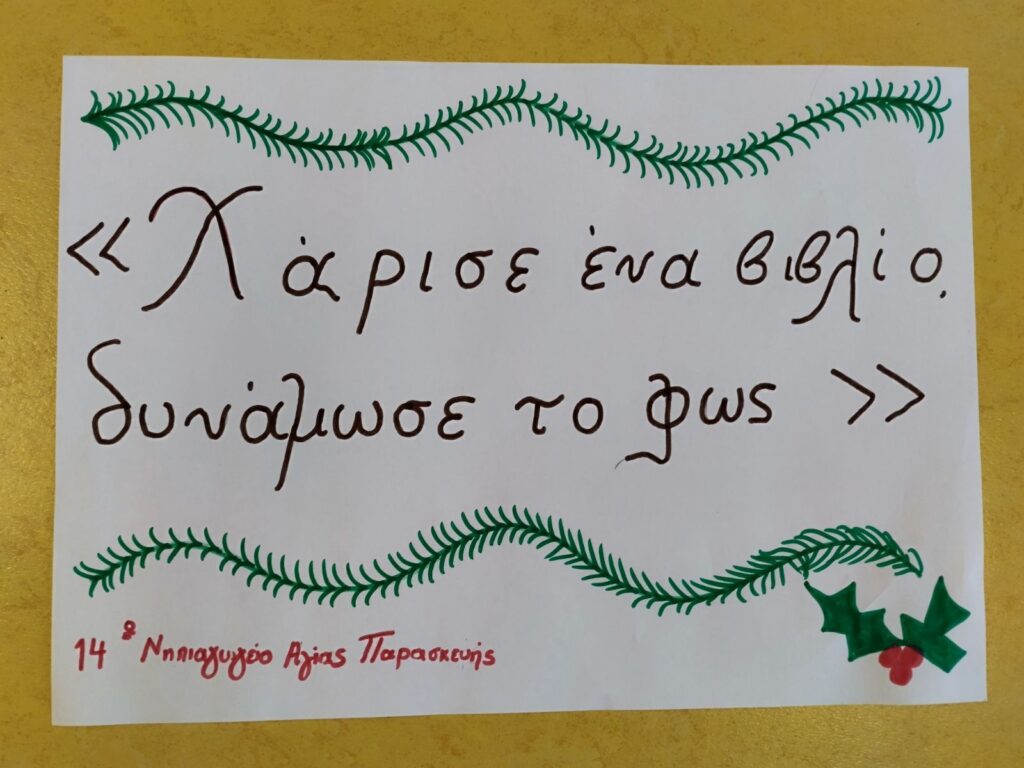 «Χάρισε ένα βιβλίο,
δυνάμωσε το φως»
14ο Νηπιαγωγείο Αγίας Παρασκευής